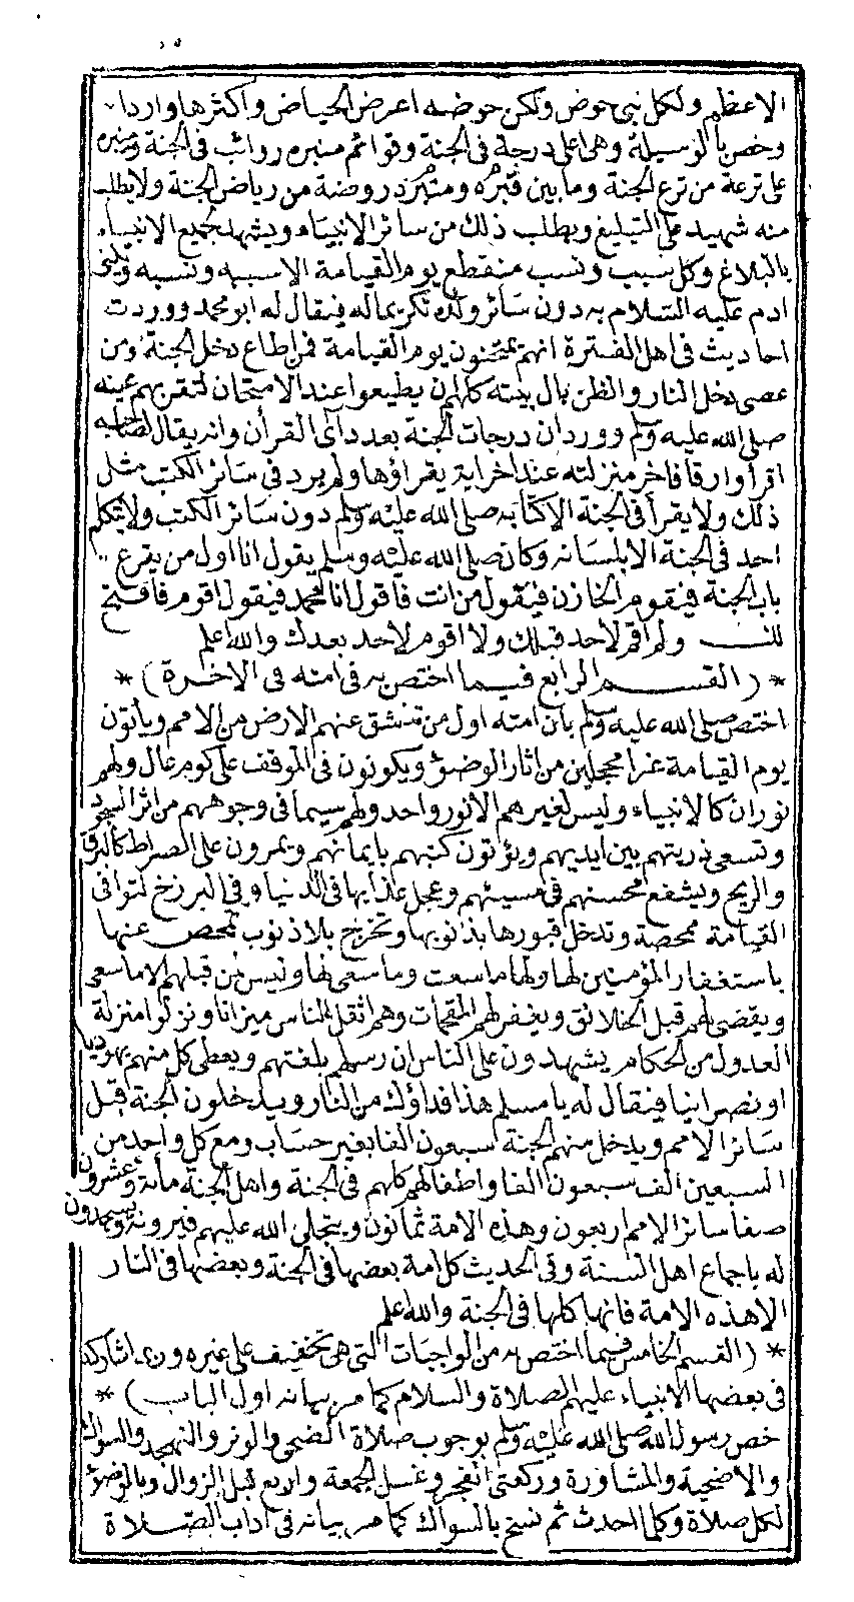 الاعظم ولكل نبي حوض ولكن حوضه اعرض الحياض واكثرها واردا
وخص بالوسيلة وهي اعلى درجة في الجنة وقوائم منبره رواتب في الجنة ومنبره
على ترعة من ترع الجنة وما بين قبره ومنبره روضة من رياض الجنة ولا يطلب
منه شهيد على التبليغ ويطلب ذلك من سائر الانبياء ويشهد لجميع الانبياء
بالبلاغ وكل سبب ونسب منقطع يوم القيامة الا سببه ونسبه ويكنى
ادم عليه السلام به دون سائر ولده تكريما له فيقال له ابو محمد ووردت
احاديث في اهل الفترة انهم يمتحنون يوم القيامة فمن اطاع دخل الجنة ومن
عصى دخل النار والظن بال بيته كلهم ان يطيعوا عند الامتحان لتقر بهم عينه
صلى الله عليه وسلم وورد ان درجات الجنة بعدد آى القرآن وانه يقال لصاحبه
اقرأ وارقا فاخر منزلته عند اخر اية يقرأوها ولم يرد في سائر الكتب مثل
ذلك ولا يقرأ في الجنة الا كتابه صلى الله عليه وسلم دون سائر الكتب ولا يتكلم
احد في الجنة الا بلسانه وكان صلى الله عليه وسلم يقول انا اول من يقرع
باب الجنة فيقوم الخازن فيقول من انت فاقول انا محمد فيقول اقوم فافتح
لك ولم اقم لاحد قبلك ولا اقوم لاحد بعدك والله اعلم
* (القسم الرابع فيما اختص به في امته في الاخرة) *
اختص صلى الله عليه وسلم بان امته اول من تنشق عنهم الارض من الامم ويأتون
يوم القيامة غرا محجلين من اثار الوضوء ويكونون في الموقف على كوم عال ولهم
نوران كالانبياء وليس لغيرهم الا نور واحد ولهم سيما في وجوههم من اثر السجود
وتسعى ذريتهم بين ايديهم ويؤتون كتبهم بايمانهم ويمرون على الصراط كالبرق
والريح ويشفع محسنهم في مسيئهم وعجل عذابها في الدنيا وفي البرزخ لتوافى
القيامة ممحصة وتدخل قبورها بذنوبها وتخرج بلا ذنوب تمحص عنها
باستغفار المؤمنين لها ولها ما سعت وما سعى لها وليس لمن قبلهم الا ما سعى
ويقضى لهم قبل الخلائق ويغفر لهم المقحمات وهم اثقل الناس ميزانا ونزلوا منزلة
العدول من الحكام يشهدون على الناس ان رسلهم بلغتهم ويعطى كل منهم يهوديا
او نصرانيا فيقال له يا مسلم هذا فداؤك من النار ويدخلون الجنة قبل
سائر الامم ويدخل منهم الجنة سبعون الفا بغير حساب ومع كل واحد من
السبعين الف سبعون الفا واطفالهم كلهم في الجنة واهل الجنة مائة وعشرون
صفا سائر الامم اربعون وهذه الامة ثمانون ويتجلى الله عليهم فيرونه ويسجدون
له باجماع اهل السنة وفي الحديث كل امة بعضها في الجنة وبعضها في النار
الا هذه الامة فانها كلها في الجنة والله اعلم
* (القسم الخامس فيما اختص به من الواجبات التي هي تخفيف على غيره وربما شاركه
في بعضها الانبياء عليهم الصلاة والسلام كما مر بيانه اول الباب) *
خص رسول الله صلى الله عليه وسلم بوجوب صلاة الضحى والوتر والتهجد والسواك
والاضحية والمشاورة وركعتي الفجر وغسل الجمعة واربع قبل الزوال وبالوضوء
لكل صلاة وكلما احدث ثم نسخ بالسواك كما مر بيانه في آداب الصلاة